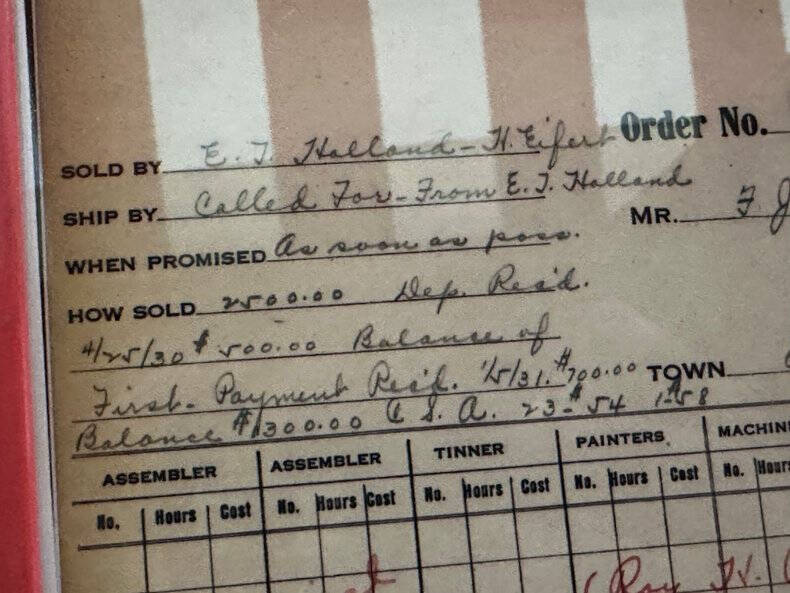 SOLD BY E. J. Holland - H. Eifert Order No.
SHIP BY Called For - From E. J. Holland
MR. F. J
WHEN PROMISED As soon as poss.
HOW SOLD 2500.00 Dep. Rec'd.
4/25/30 $500.00 Balance of
First - Payment Rec'd. 1/5/31. $700.00 TOWN
Balance $1300.00 C. S. A. 23-$54 1-$58
ASSEMBLER ASSEMBLER TINNER PAINTERS MACHIN
No. Hours Cost No. Hours Cost No. Hours Cost No. Hours Cost No. Hours
(Roy H.